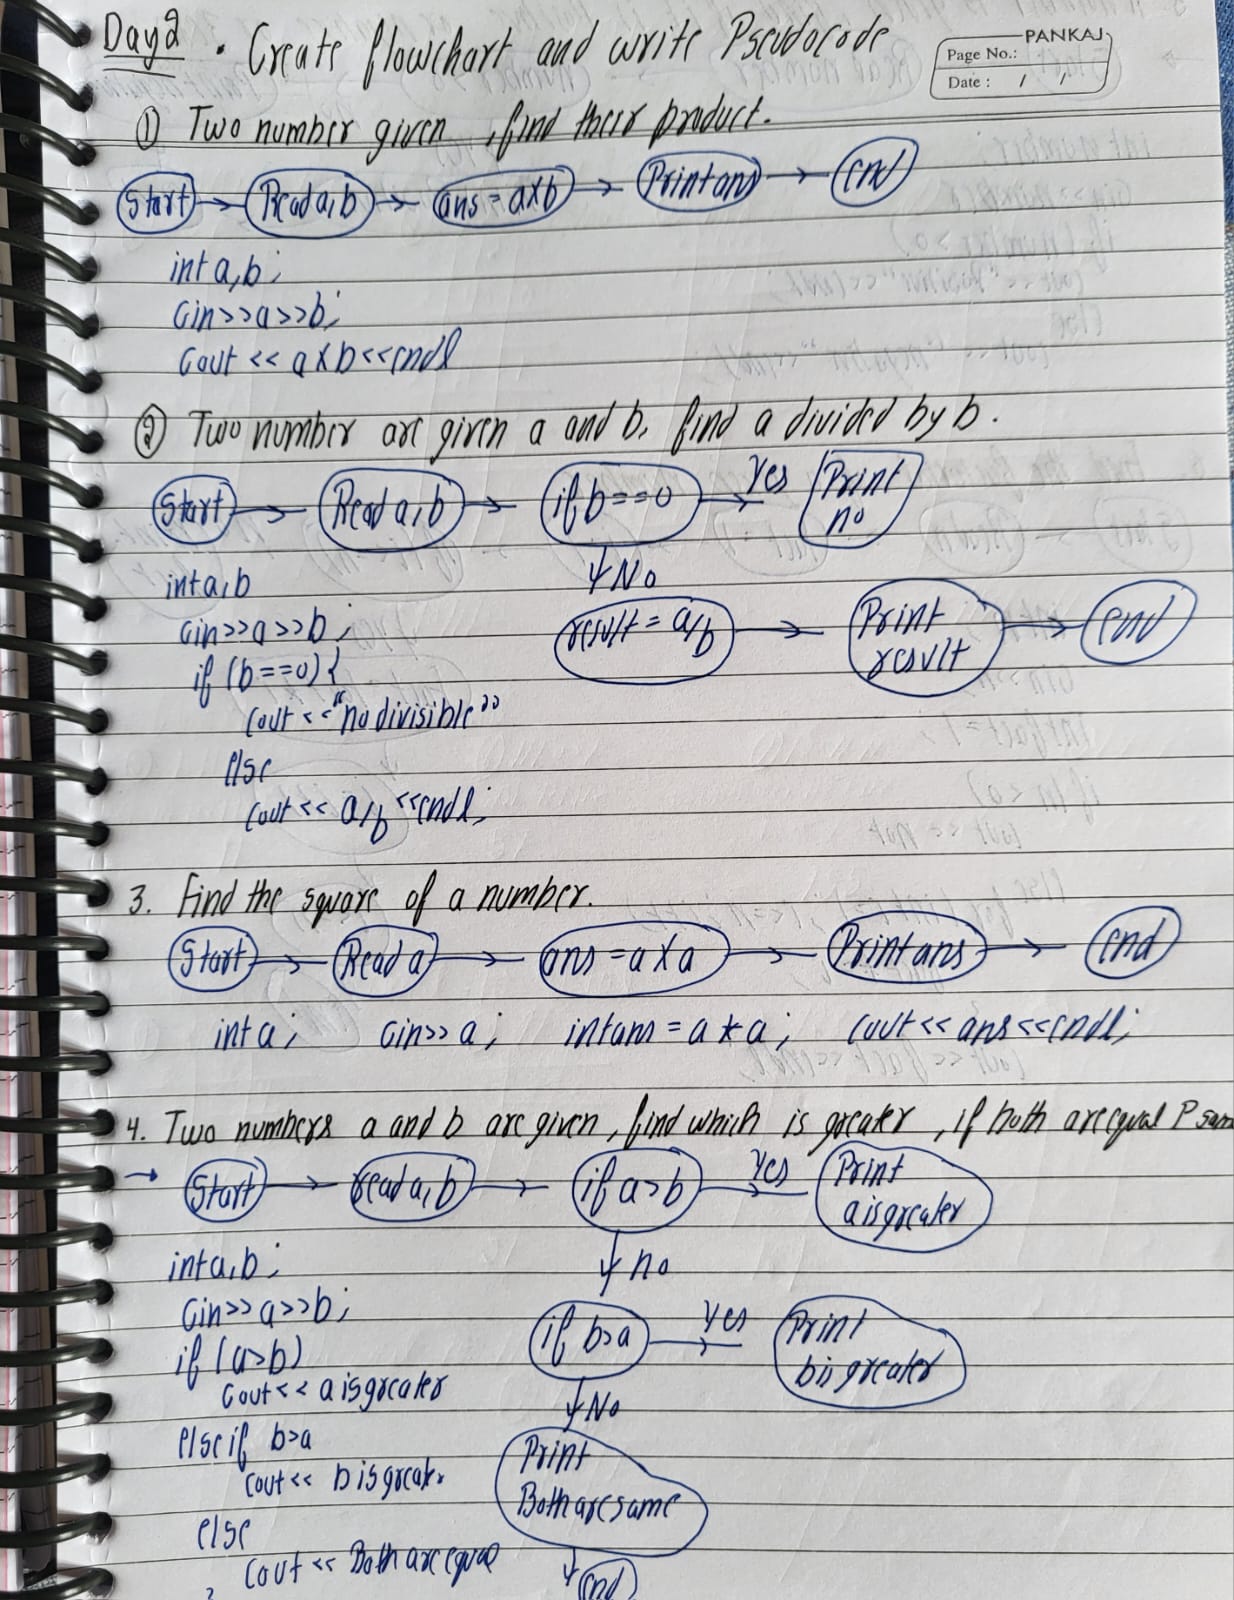 Day 2 . Create flowchart and write Pseudocode
PANKAJ
Page No.:
Date : / /
① Two number given , find their product.
Start → Read a, b → ans = a x b → Print ans → end
int a, b ;
Cin >> a >> b;
Cout << a x b << endl
② Two number are given a and b, find a divided by b.
Start → Read a, b → if b == 0 → Yes Print no
↓ No
result = a/b → Print result → end
int a, b
Cin >> a >> b ;
if (b == 0) {
Cout << "no divisible"
else
Cout << a/b << endl;
3. Find the square of a number.
Start → Read a → ans = a x a → Print ans → end
int a ; Cin >> a ; int ans = a * a ; Cout << ans << endl;
4. Two numbers a and b are given, find which is greater, if both are equal P sam
→ Start → read a, b → if a > b → Yes Print a is greater
↓ no
int a, b ;
Cin >> a >> b ;
if b > a → Yes Print b is greater
if (a > b)
Cout << a is greater
↓ No
else if b > a
Cout << b is greater
Print Both are same
else
Cout << Both are equal
↓ end